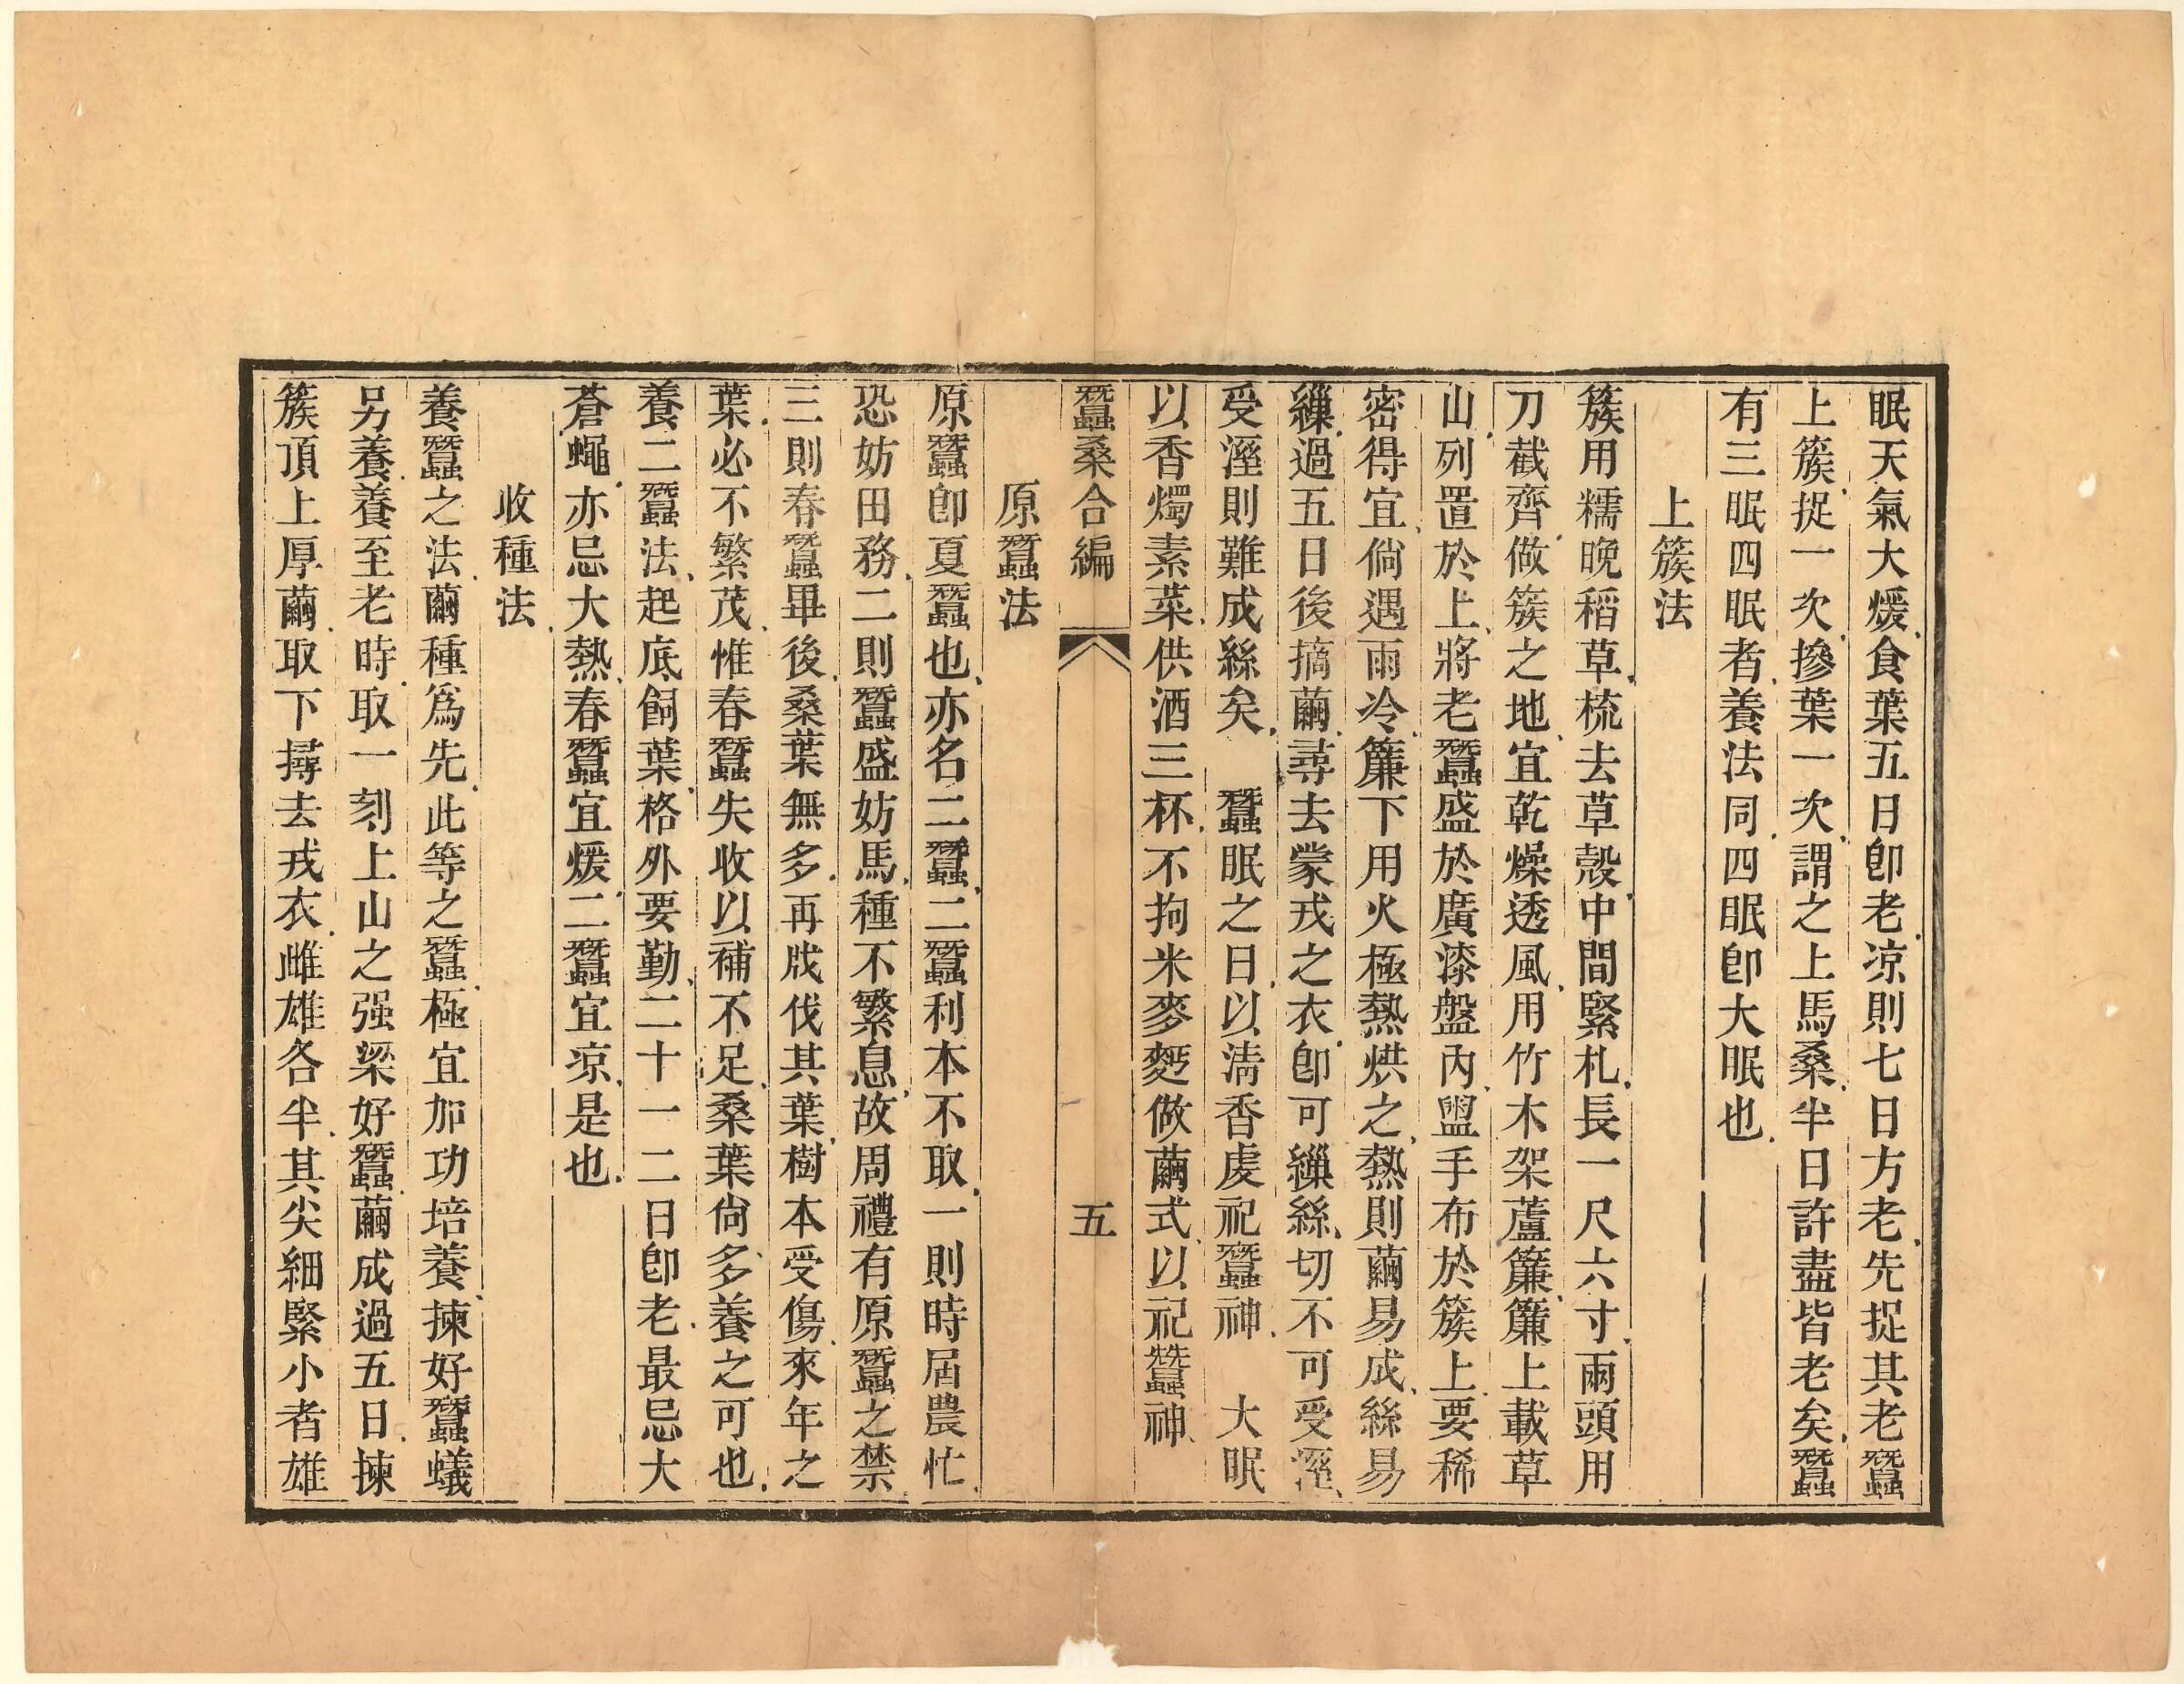 眠天氣大煖食葉五日卽老凉則七日方老先捉其老蠶
上簇捉一次摻葉一次謂之上馬桑半日許盡皆老矣蠶
有三眠四眠者養法同四眠卽大眠也
上簇法
簇用糯晚稻草梳去草殼中間緊札長一尺六寸兩頭用
刀截齊做簇之地宜乾燥透風用竹木架蘆簾簾上載草
山列置於上將老蠶盛於廣漆盤內盥手布於簇上要稀
密得宜倘遇雨冷簾下用火極熱烘之熱則繭易成絲易
繅過五日後摘繭尋去蒙戎之衣卽可繅絲切不可受溼
受溼則難成絲矣　蠶眠之日以清香虔祀蠶神　大眠
以香燭素菜供酒三杯不拘米麥麪做繭式以祀蠶神
蠶桑合編　五
原蠶法
原蠶卽夏蠶也亦名二蠶二蠶利本不取一則時屆農忙
恐妨田務二則蠶盛妨馬種不繁息故周禮有原蠶之禁
三則春蠶畢後桑葉無多再戕伐其葉樹本受傷來年之
葉必不繁茂惟春蠶失收以補不足桑葉尙多養之可也
養二蠶法起底飼葉格外要勤二十一二日卽老最忌大
蒼蠅亦忌大熱春蠶宜煖二蠶宜凉是也
收種法
養蠶之法繭種爲先此等之蠶極宜加功培養揀好蠶蟻
另養養至老時取一刻上山之强梁好蠶繭成過五日揀
簇頂上厚繭取下撏去戎衣雌雄各半其尖細緊小者雄